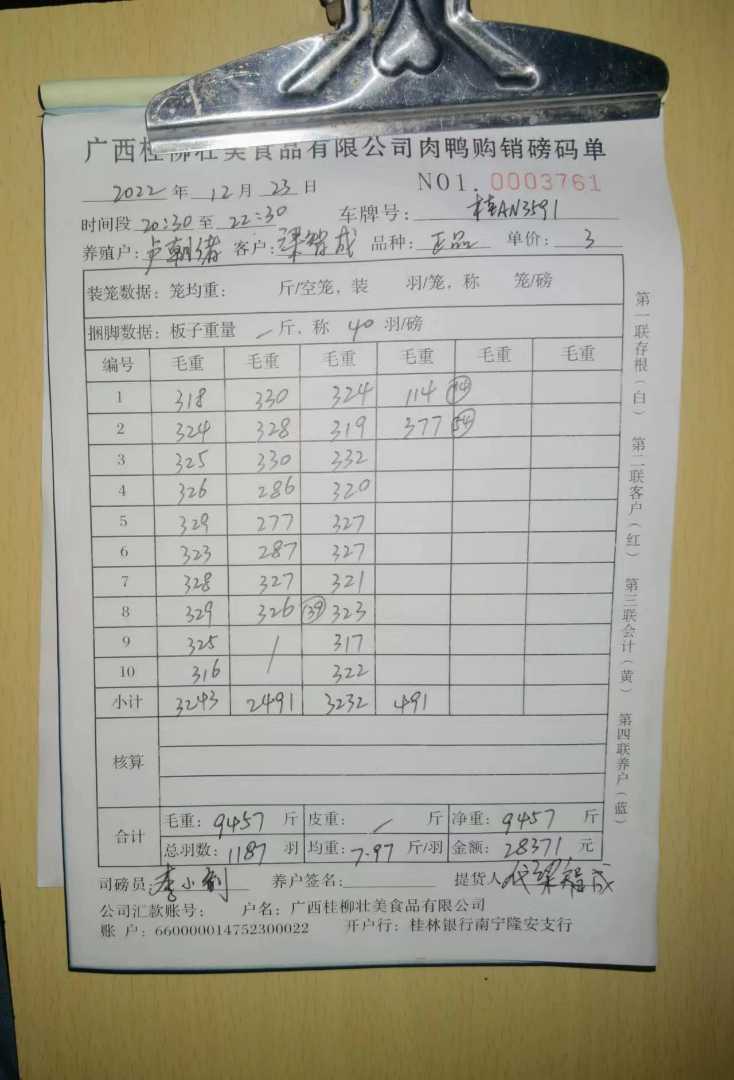 广西桂柳壮美食品有限公司肉鸭购销磅码单
2022 年 12 月 23 日 NO1. 0003761
时间段 20:30 至 22:30 车牌号: 桂AN3591
养殖户: 卢朝绪 客户: 梁智成 品种: 正品 单价: 3
装笼数据: 笼均重: 斤/空笼, 装 羽/笼, 称 笼/磅
捆脚数据: 板子重量 / 斤, 称 40 羽/磅
编号 毛重 毛重 毛重 毛重 毛重 毛重
1 318 330 324 114 14
2 324 328 319 377 54
3 325 330 332
4 326 286 320
5 329 277 327
6 323 287 327
7 328 327 321
8 329 326 39 323
9 325 / 317
10 316 322
小计 3243 2491 3232 491
核算
合计 毛重: 9457 斤 皮重: / 斤 净重: 9457 斤
总羽数: 1187 羽 均重: 7.97 斤/羽 金额: 28371 元
司磅员: 李小利 养户签名: 提货人 代梁智成
公司汇款账号: 户名: 广西桂柳壮美食品有限公司
账 户: 660000014752300022 开户行: 桂林银行南宁隆安支行
第一联存根(白) 第二联客户(红) 第三联会计(黄) 第四联养户(蓝)